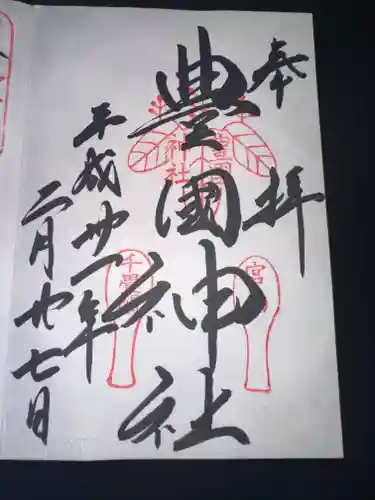 奉拝
豊國神社
平成廿一年
二月廿七日
千畳閣
宮
神社